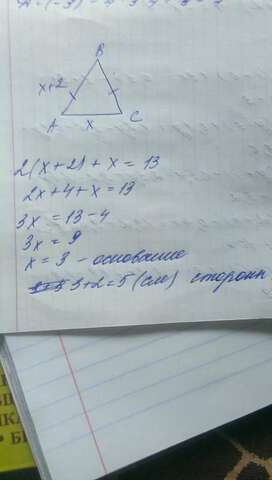 B
x+2
A
x
C
2(x+2)+x=13
2x+4+x=13
3x=13-4
3x=9
x=3 - основание
3+2=5 (см) сторона